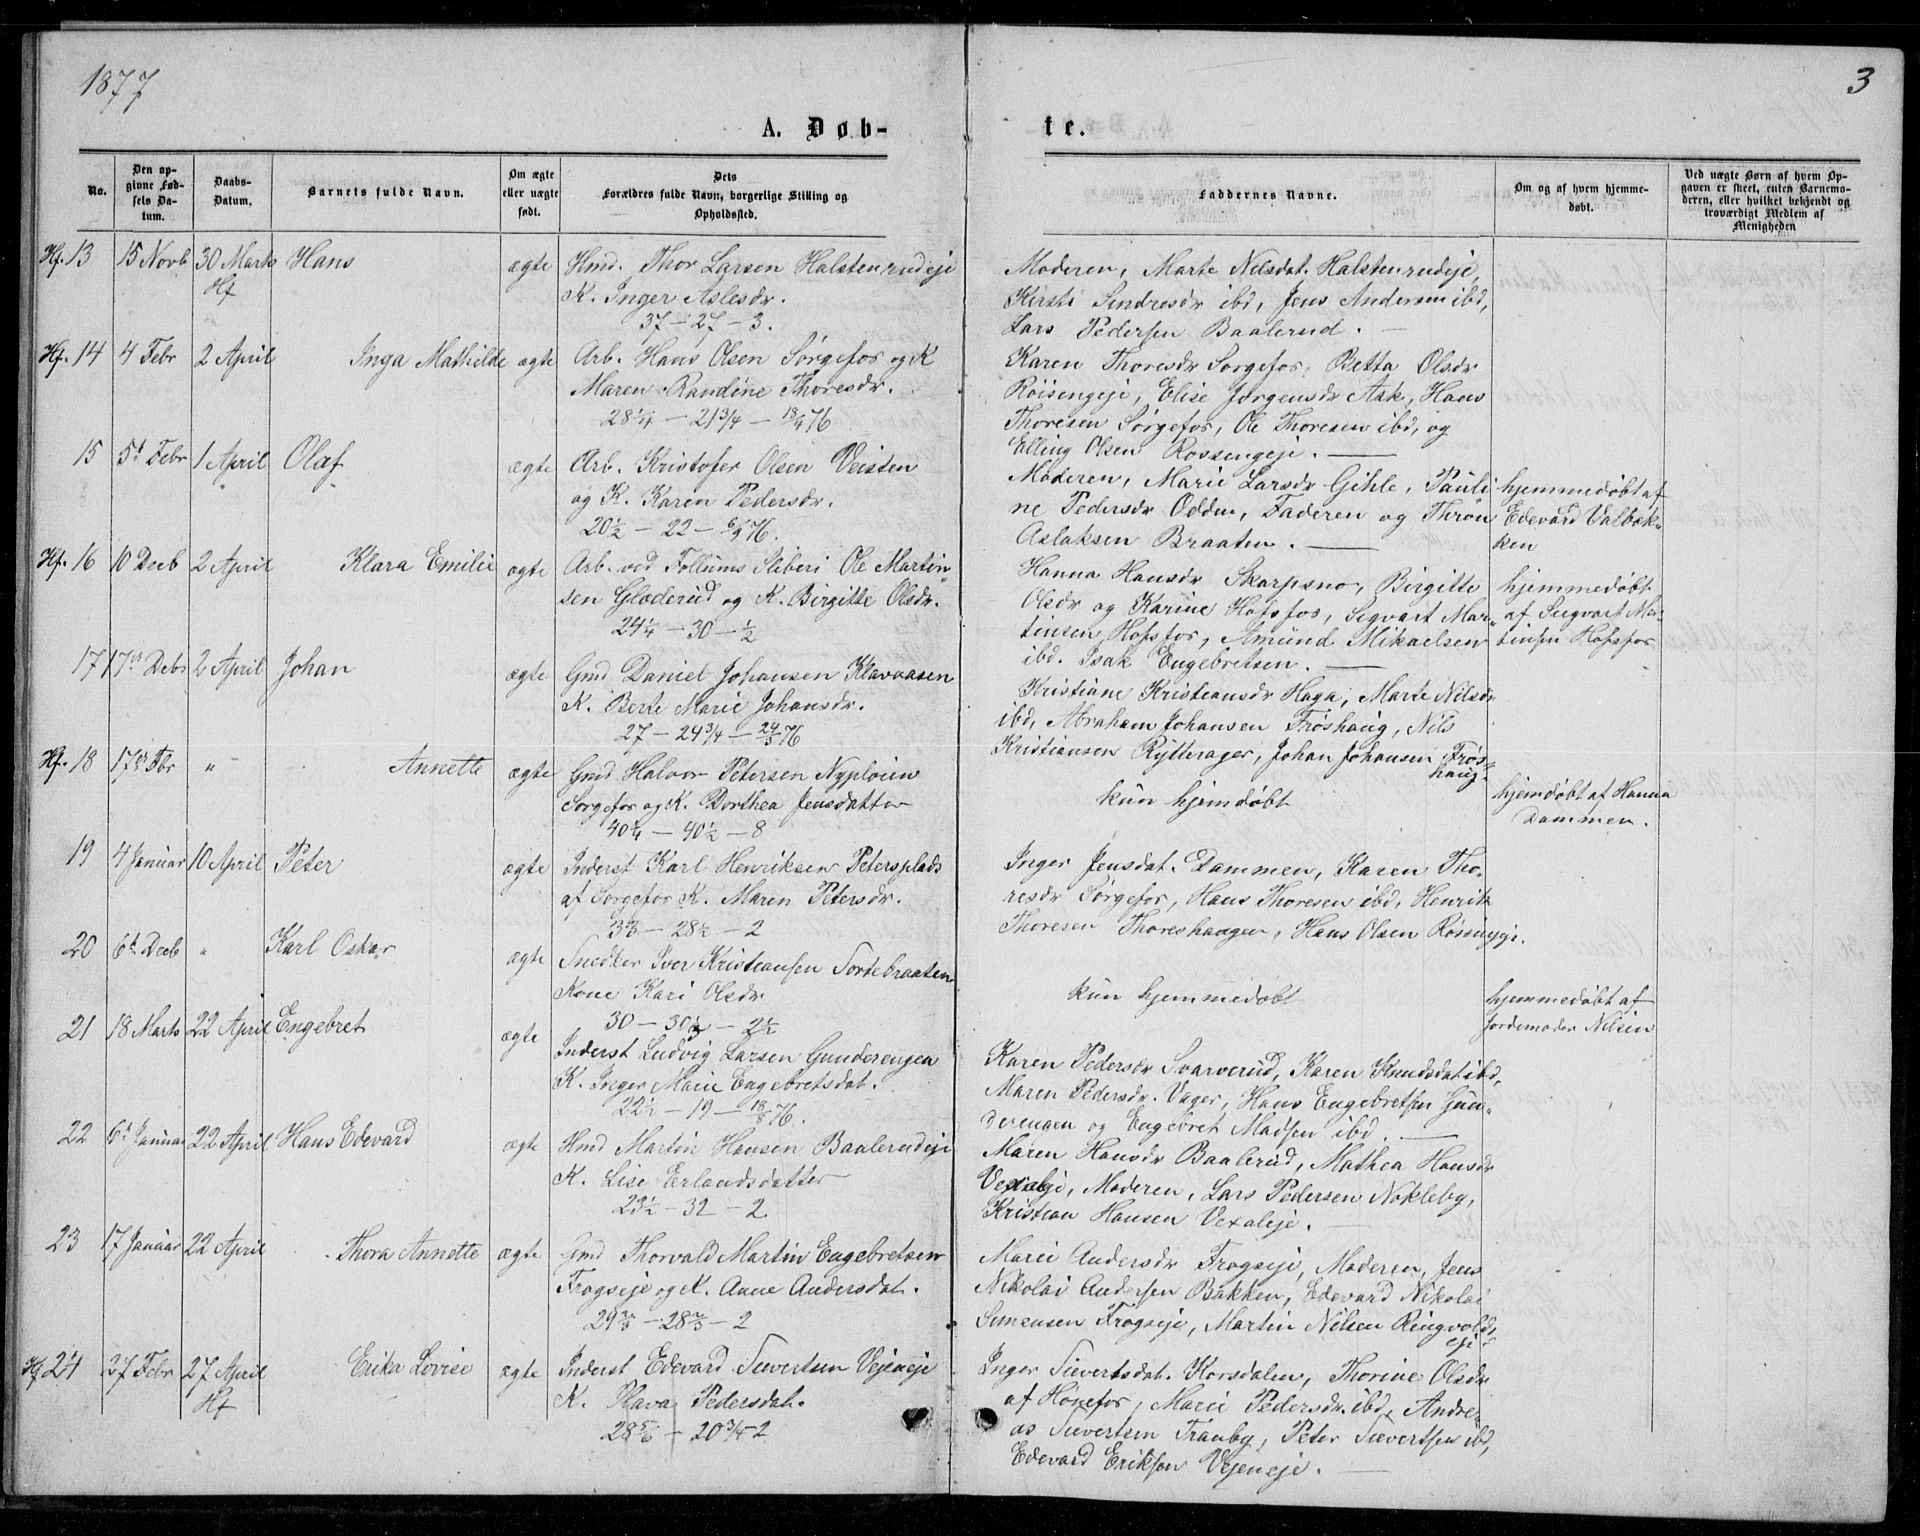 1877
3
A. Døb-
te.
No.
Den op-
givne Fød-
sels Da-
tum.
Daabs-
Datum.
Barnets fulde Navn.
Om ægte
eller uægte
født.
Dets
Forældres fulde Navn, borgerlige Stilling og
Opholdssted.
Faddernes Navne.
Om og af hvem hjemme-
døbt.
Ved uægte Børn af hvem Op-
gaven er skeet, enten Barnemo-
deren, eller hvilket bekjendt og
troværdigt Medlem af
Menigheden
Hf. 13 15 Novb 30 Marts Hans ægte Hmd. Thor Larsen Halstenrudeje
Hf
K. Inger Aslesdr.
37 - 27 - 3.
Moderen, Marte Nilsdat. Halstenrudeje,
Kirsti Sindresdr ibd, Jens Andersen ibd,
Lars Pedersen Baalerud.
Hf. 14 4 Febr 2 April Inga Mathilde ægte Arb. Hans Olsen Sørgefos og K
Maren Randine Thoresdr.
28 1/4 - 21 3/4 - 18/4 76
Karen Thoresdr Sørgefos, Betta Olsdr
Røisengeje, Elise Jørgensdr Ask, Hans
Thoresen Sørgefos, Ole Thoresen ibd, og
Elling Olsen Rossengeje.
15 5t Febr 1 April Olaf ægte Arb. Kristofer Olsen Veisten
og K. Karen Pedersdr.
20 1/2 - 22 - 6/9 76.
Moderen, Marie Larsdr Gihle, Pauli
ne Pedersdr Oddu, Faderen og Thron
Aslaksen Braaten.
hjemmedøbt af
Edevard Valbæk-
ken
Hf. 16 10 Decb 2 April Klara Emilie ægte Arb. ved Follums Sliberi Ole Martin
sen Gladerud og K. Birgitte Olsdr.
24 1/4 - 30 - 1/2
Hanna Hansdr Skarpsno, Birgitte
Olsdr og Karine Hofsfos, Sigvart Mar-
tinsen Hofsfos, Amund Mikaelsen
ibd. Isak Engebretsen.
hjemmedøbt
af Sigvart Mar-
tinsen Hofsfos
17 17de Decb 2 April Johan ægte Gmd Daniel Johansen Klavaasen
K. Berte Marie Johansdr.
27 - 24 3/4 - 24/3 76
Kristiane Kristiansdr Haga, Marte Nilsdr
ibd, Abraham Johansen Frøshaug, Nils
Kristiansen Rytterager, Johan Johansen Frøs-
haug.
Hf. 18 17de Fbr " Annette ægte Gmd Halvor Petersen Nypløien
Sørgefos og K. Dorthea Jensdatter
40 1/4 - 40 1/2 - 8
kun hjemdøbt
hjemdøbt af Hanna
Dammen.
19 4 Januar 10 April Peter ægte Inderst Karl Henriksen Petersplads
af Sørgefos K. Maren Petersdr.
- 28 1/2 - 2
Inger Jensdat. Dammen, Karen Tho-
resdr Sørgefos, Hans Thoresen ibd, Henrik
Thoresen Thoreshaugen, Hans Olsen
20 6t Decb " Karl Oskar ægte Snedker Iver Kristiansen Sortebraaten
Kone Kari Olsdr
30 - 30 1/2 - 2 1/2
kun hjemmedøbt
hjemmedøbt af
Jordemoder Nilsen
21 18 Marts 22 April Engebret ægte Inderst Ludvig Larsen Gunderengen
K. Inger Marie Engebretsdat.
22 1/2 - 19 - 18/8 76.
Karen Pedersdr Svarverud, Karen Knudsdat ibd,
Maren Pedersdr. Vager, Hans Engebretsen Gun-
derengen og Engebret Madsen ibd.
22 6t Januar 22 April Hans Edevard ægte Hmd Martin Hansen Baalerudeje
K. Lise Erlandsdatter
23 1/2 - 32 - 2
Maren Hansdr Baalerud, Mathea Hansdr
Vexaleje, Moderen, Lars Pedersen Nokleby,
Kristian Hansen Vexaleje.
23 17 Januar 22 April Thora Annette ægte Gmd Thorvald Martin Engebretsen
Frogseje og K. Anne Andersdat.
29 2/3 - 28 2/3 - 2
Marie Andersdr Frogseje, Moderen, Jens
Nikolai Andersen Bakken, Edevard Nikolai
Simensen Frogseje, Martin Nilsen Ringvolds-
eje
Hf 24 Febr 27 April Erika Lovise ægte Inderst Edevard Sievertsen Vejeneje
Hf
K. Hava Pedersdat.
28 5/6 - 20 3/4 - 2
Inger Sievertsdat. Korsdalen, Thorine Olsdr
af Hønefos, Marie Pedersdr. ibd, Andre-
as Sievertsen Tranby, Peter Sievertsen ibd,
Edevard Eriksen Vejeneje.